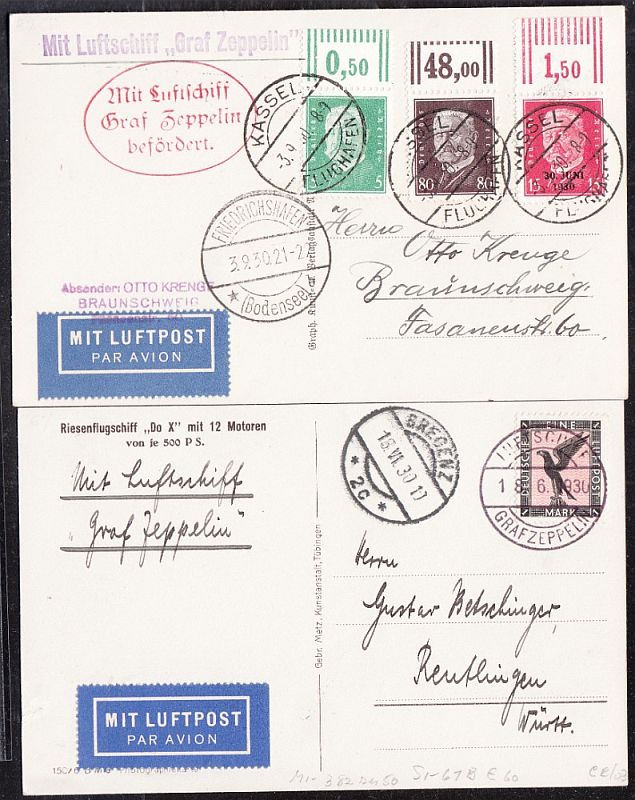 Mit Luftschiff „Graf Zeppelin"
0,50
48,00
1,50
Mit Luftschiff
Graf Zeppelin
befördert.
KASSEL
FLUGHAFEN
5
KASSEL
80 80
FLUGHAFEN
KASSEL
30. JUNI
1930
15 15
FLUGHAFEN
FRIEDRICHSHAFEN
3.9.30.21-2
(Bodensee)
Herrn
Otto Krenge
Braunschweig.
Fasanenstr. 60
Absender: OTTO KRENGE
BRAUNSCHWEIG
MIT LUFTPOST
PAR AVION
Riesenflugschiff „Do X" mit 12 Motoren
von je 500 PS.
Mit Luftschiff
„Graf Zeppelin"
BREGENZ
18.VI.30 17
* 2c *
EINE
DEUTSCHE LUFTPOST
1 MARK 1
LUFTSCHIFF
18.6.1930
GRAF ZEPPELIN
Gebr. Metz, Kunstanstalt, Tübingen
Herrn
Gustav Betschinger,
Reutlingen
Württ.
MIT LUFTPOST
PAR AVION